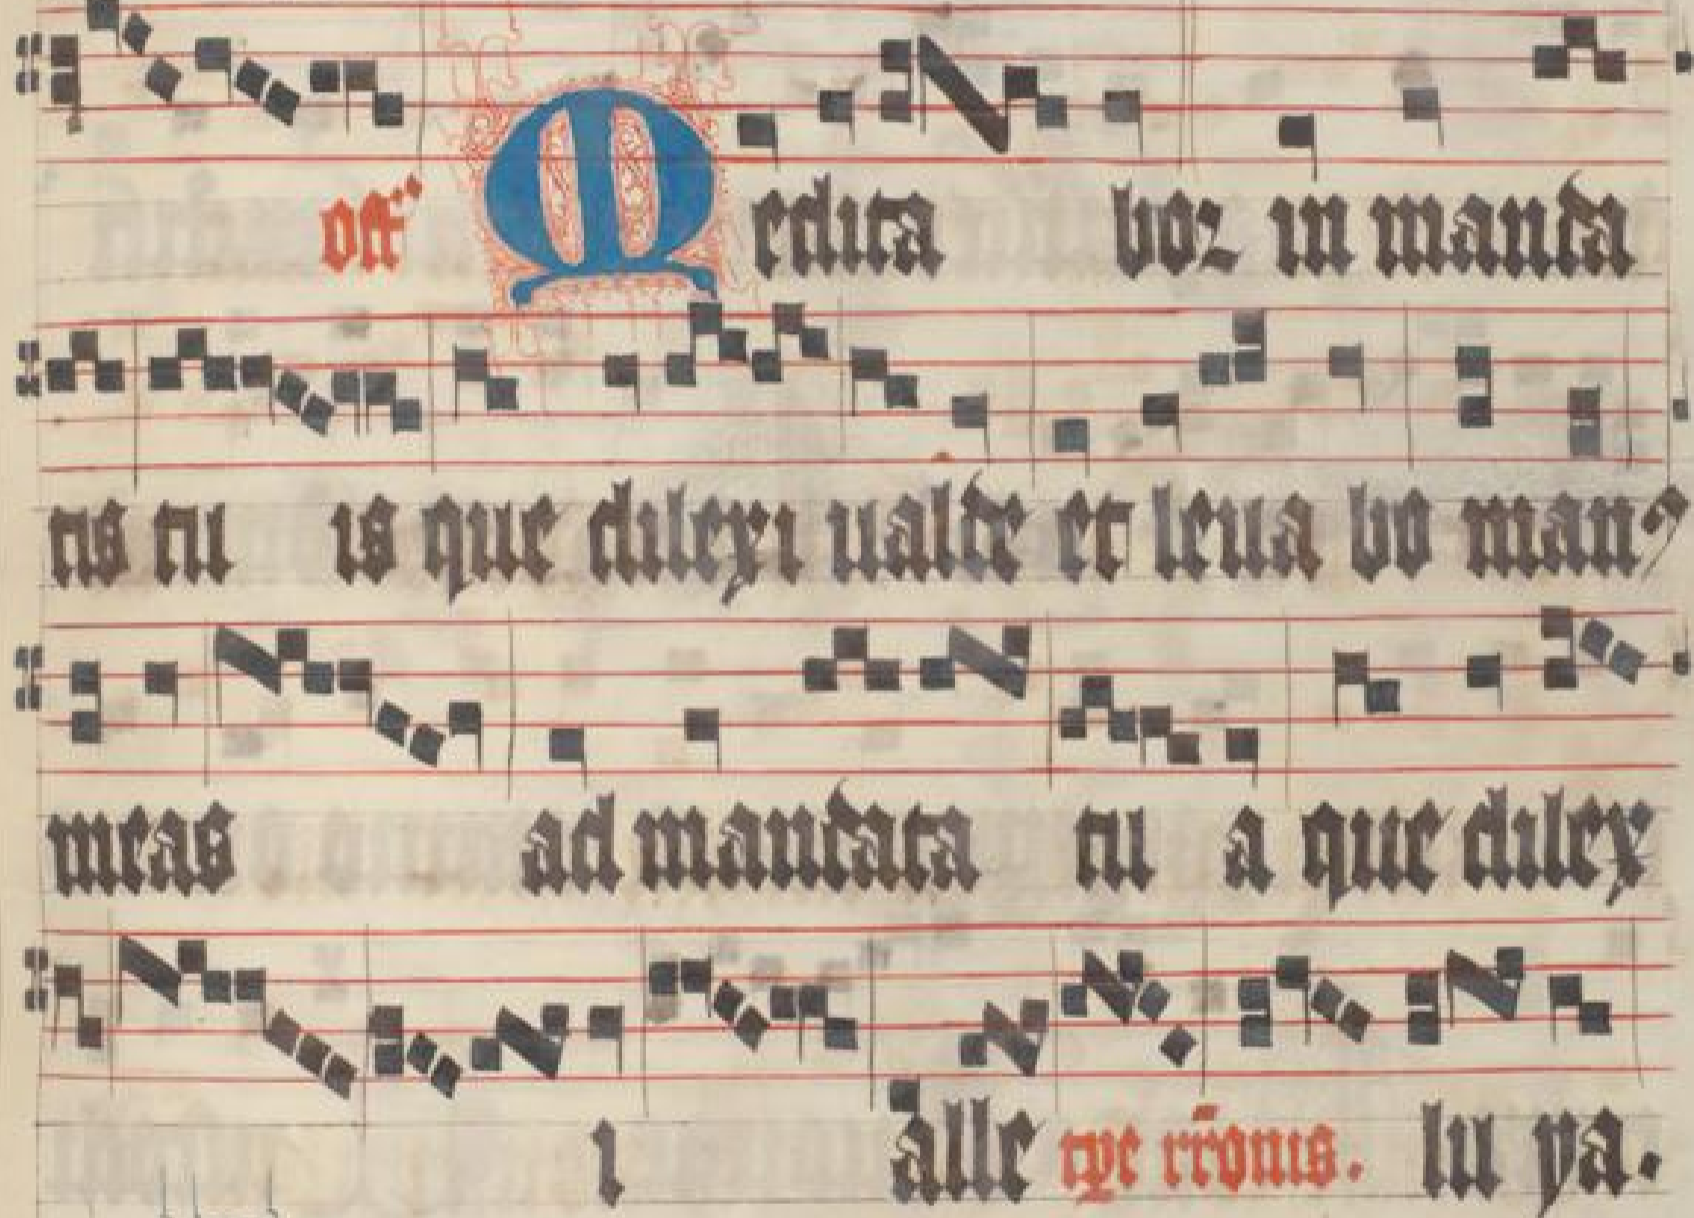 off Medita boz in manda
tis tu is que dilexi ualde et leua bo man
meas ad mandata tu a que dilex
i alle tpe rr̄onis. lu ya.